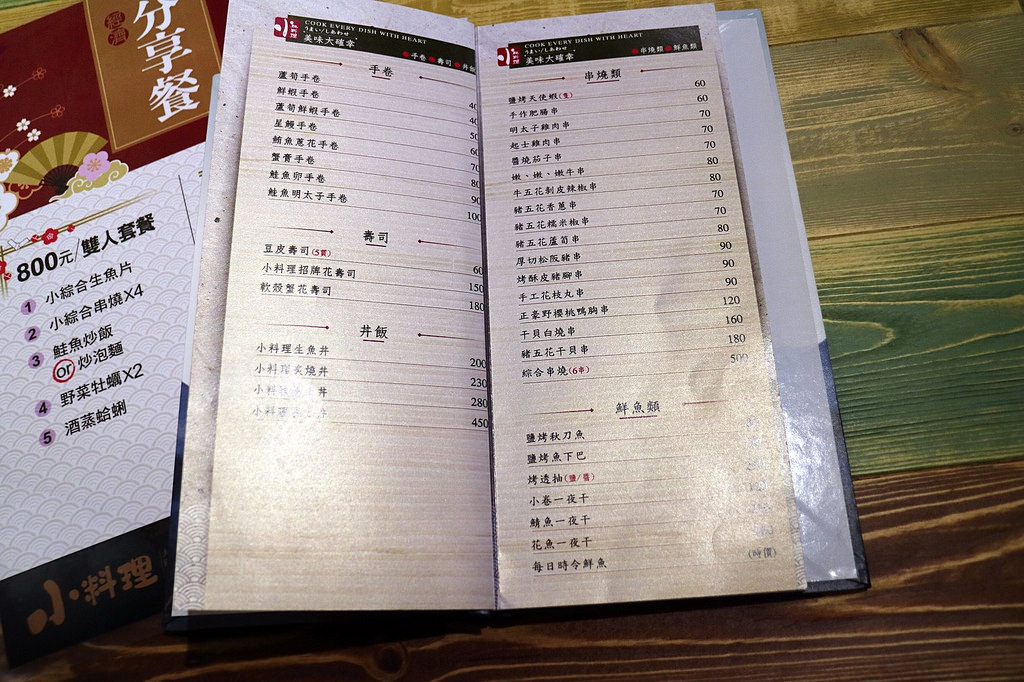 經濟
分享餐
800元/雙人套餐
1 小綜合生魚片
2 小綜合串燒X4
3 鮭魚炒飯
or 炒泡麵
4 野菜牡蠣X2
5 酒蒸蛤蜊
小料理
小料理
COOK EVERY DISH WITH HEART
うまい/しあわせ
美味大確幸
手卷 壽司 丼飯
手卷
蘆筍手卷 40
鮮蝦手卷 40
蘆筍鮮蝦手卷 50
星鰻手卷 60
鮪魚蔥花手卷 70
蟹膏手卷 80
鮭魚卵手卷 90
鮭魚明太子手卷 100
壽司
豆皮壽司(5貫) 60
小料理招牌花壽司 150
軟殼蟹花壽司 180
丼飯
小料理生魚丼 200
小料理炙燒丼 230
小料理 丼 280
小料理 丼 450
小料理
COOK EVERY DISH WITH HEART
うまい/しあわせ
美味大確幸
串燒類 鮮魚類
串燒類
鹽烤天使蝦(隻) 60
手作肥腸串 60
明太子雞肉串 70
起士雞肉串 70
醬燒茄子串 70
嫩、嫩、嫩牛串 80
牛五花剝皮辣椒串 80
豬五花香蔥串 70
豬五花糯米椒串 70
豬五花蘆筍串 80
厚切松阪豬串 90
烤酥皮豬腳串 90
手工花枝丸串 90
正豪野櫻桃鴨胸串 120
干貝白燒串 160
豬五花干貝串 180
綜合串燒(6串) 500
鮮魚類
鹽烤秋刀魚
鹽烤魚下巴
烤透抽(鹽/醬)
小卷一夜干
鯖魚一夜干
花魚一夜干
每日時令鮮魚 (時價)